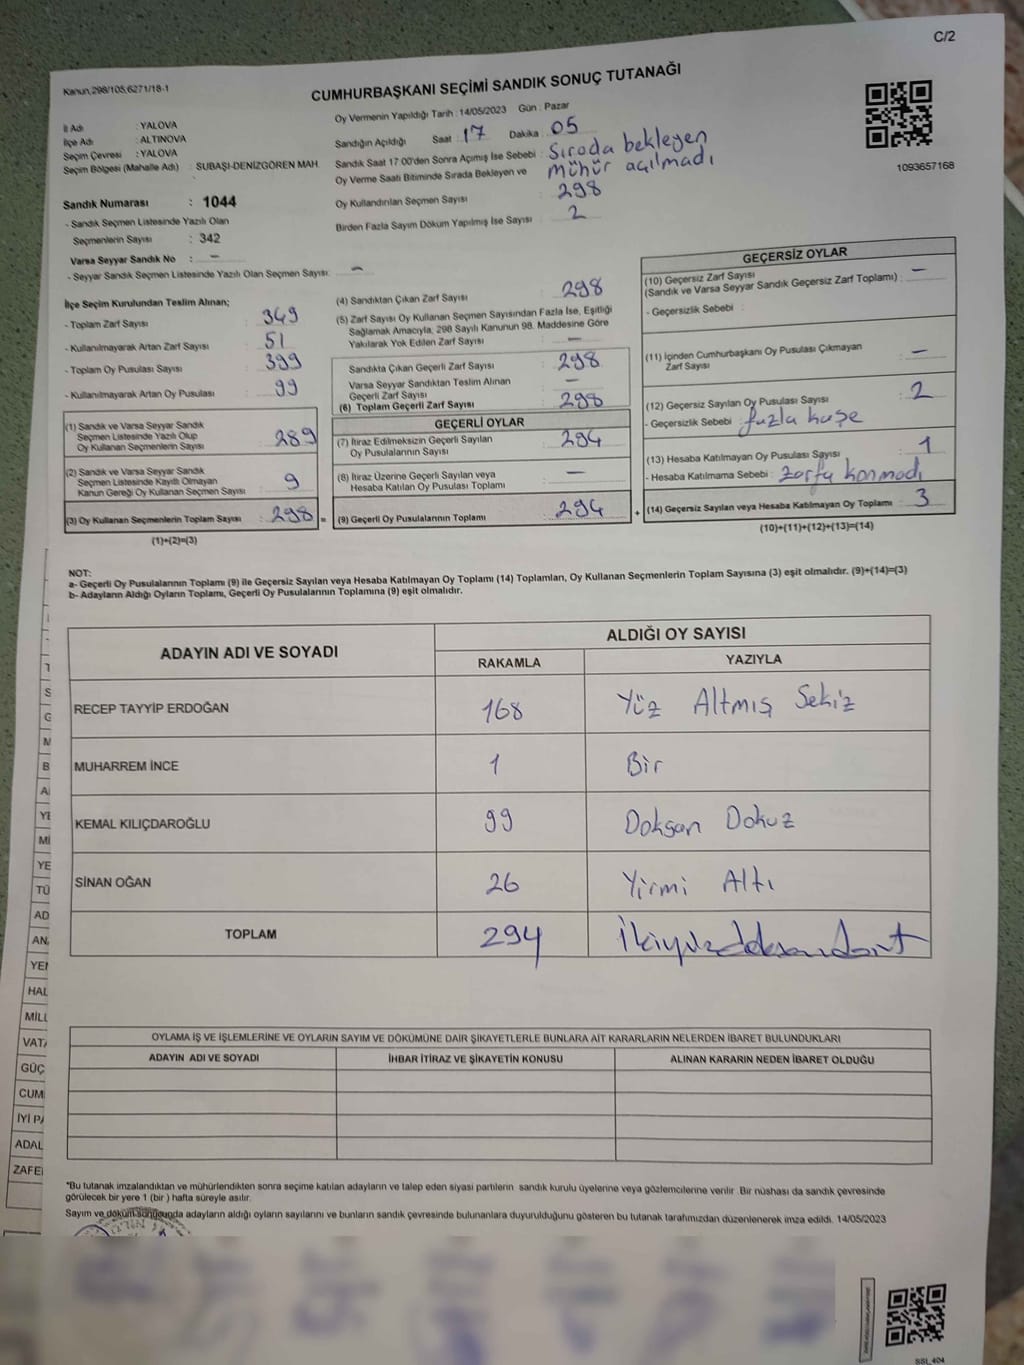 C/2
Kanun,298/105,6271/18-1
CUMHURBAŞKANI SEÇİMİ SANDIK SONUÇ TUTANAĞI
1093657168
İl Adı : YALOVA
İlçe Adı : ALTINOVA
Seçim Çevresi : YALOVA
Seçim Bölgesi (Mahalle Adı) : SUBAŞI-DENİZGÖREN MAH.
Oy Vermenin Yapıldığı Tarih : 14/05/2023 Gün : Pazar
Sandığın Açıldığı Saat : 17 Dakika : 05
Sandık Saat 17:00'den Sonra Açımış İse Sebebi : Sırada bekleyen
Oy Verme Saati Bitiminde Sırada Bekleyen ve mühür açılmadı
Oy Kullandırılan Seçmen Sayısı : 298
Birden Fazla Sayım Döküm Yapılmış İse Sayısı : 2
Sandık Numarası : 1044
- Sandık Seçmen Listesinde Yazılı Olan
Seçmenlerin Sayısı : 342
Varsa Seyyar Sandık No : -
- Seyyar Sandık Seçmen Listesinde Yazılı Olan Seçmen Sayısı: -
İlçe Seçim Kurulundan Teslim Alınan;
- Toplam Zarf Sayısı : 349
- Kullanılmayarak Artan Zarf Sayısı : 51
- Toplam Oy Pusulası Sayısı : 399
- Kullanılmayarak Artan Oy Pusulası : 99
(1) Sandık ve Varsa Seyyar Sandık
Seçmen Listesinde Yazılı Olup
Oy Kullanan Seçmenlerin Sayısı : 289
(2) Sandık ve Varsa Seyyar Sandık
Seçmen Listesinde Kayıtlı Olmayan
Kanun Gereği Oy Kullanan Seçmen Sayısı : 9
(3) Oy Kullanan Seçmenlerin Toplam Sayısı : 298 =
(1)+(2)=(3)
(4) Sandıktan Çıkan Zarf Sayısı : 298
(5) Zarf Sayısı Oy Kullanan Seçmen Sayısından Fazla İse, Eşitliği
Sağlamak Amacıyla, 298 Sayılı Kanunun 98. Maddesine Göre
Yakılarak Yok Edilen Zarf Sayısı : -
Sandıkta Çıkan Geçerli Zarf Sayısı : 298
Varsa Seyyar Sandıktan Teslim Alınan
Geçerli Zarf Sayısı : -
(6) Toplam Geçerli Zarf Sayısı : 298
GEÇERLİ OYLAR
(7) İtiraz Edilmeksizin Geçerli Sayılan
Oy Pusulalarının Sayısı : 294
(8) İtiraz Üzerine Geçerli Sayılan veya
Hesaba Katılan Oy Pusulası Toplamı : -
(9) Geçerli Oy Pusulalarının Toplamı : 294 +
GEÇERSİZ OYLAR
(10) Geçersiz Zarf Sayısı
(Sandık ve Varsa Seyyar Sandık Geçersiz Zarf Toplamı) : -
- Geçersizlik Sebebi :
(11) İçinden Cumhurbaşkanı Oy Pusulası Çıkmayan
Zarf Sayısı : -
(12) Geçersiz Sayılan Oy Pusulası Sayısı : 2
- Geçersizlik Sebebi : fazla kaşe
(13) Hesaba Katılmayan Oy Pusulası Sayısı : 1
- Hesaba Katılmama Sebebi : zarfa konmadı
(14) Geçersiz Sayılan veya Hesaba Katılmayan Oy Toplamı : 3
(10)+(11)+(12)+(13)=(14)
NOT:
a- Geçerli Oy Pusulalarının Toplamı (9) ile Geçersiz Sayılan veya Hesaba Katılmayan Oy Toplamı (14) Toplamları, Oy Kullanan Seçmenlerin Toplam Sayısına (3) eşit olmalıdır. (9)+(14)=(3)
b- Adayların Aldığı Oyların Toplamı, Geçerli Oy Pusulalarının Toplamına (9) eşit olmalıdır.
ADAYIN ADI VE SOYADI ALDIĞI OY SAYISI
RAKAMLA YAZIYLA
RECEP TAYYİP ERDOĞAN 168 Yüz Altmış Sekiz
MUHARREM İNCE 1 Bir
KEMAL KILIÇDAROĞLU 99 Doksan Dokuz
SİNAN OĞAN 26 Yirmi Altı
TOPLAM 294 İkiyüzdoksandört
OYLAMA İŞ VE İŞLEMLERİNE VE OYLARIN SAYIM VE DÖKÜMÜNE DAİR ŞİKAYETLERLE BUNLARA AİT KARARLARIN NELERDEN İBARET BULUNDUKLARI
ADAYIN ADI VE SOYADI İHBAR İTİRAZ VE ŞİKAYETİN KONUSU ALINAN KARARIN NEDEN İBARET OLDUĞU
*Bu tutanak imzalandıktan ve mühürlendikten sonra seçime katılan adayların ve talep eden siyasi partilerin sandık kurulu üyelerine veya gözlemcilerine verilir. Bir nüshası da sandık çevresinde
görülecek bir yere 1 (bir ) hafta süreyle asılır.
Sayım ve döküm sonucunda adayların aldığı oyların sayılarını ve bunların sandık çevresinde bulunanlara duyurulduğunu gösteren bu tutanak tarafımızdan düzenlenerek imza edildi. 14/05/2023
YE
Mİ
YE
TÜ
AD
AN
YEN
HAL
MİLL
VATA
GÜÇ
CUM
İYİ PA
ADAL
ZAFE